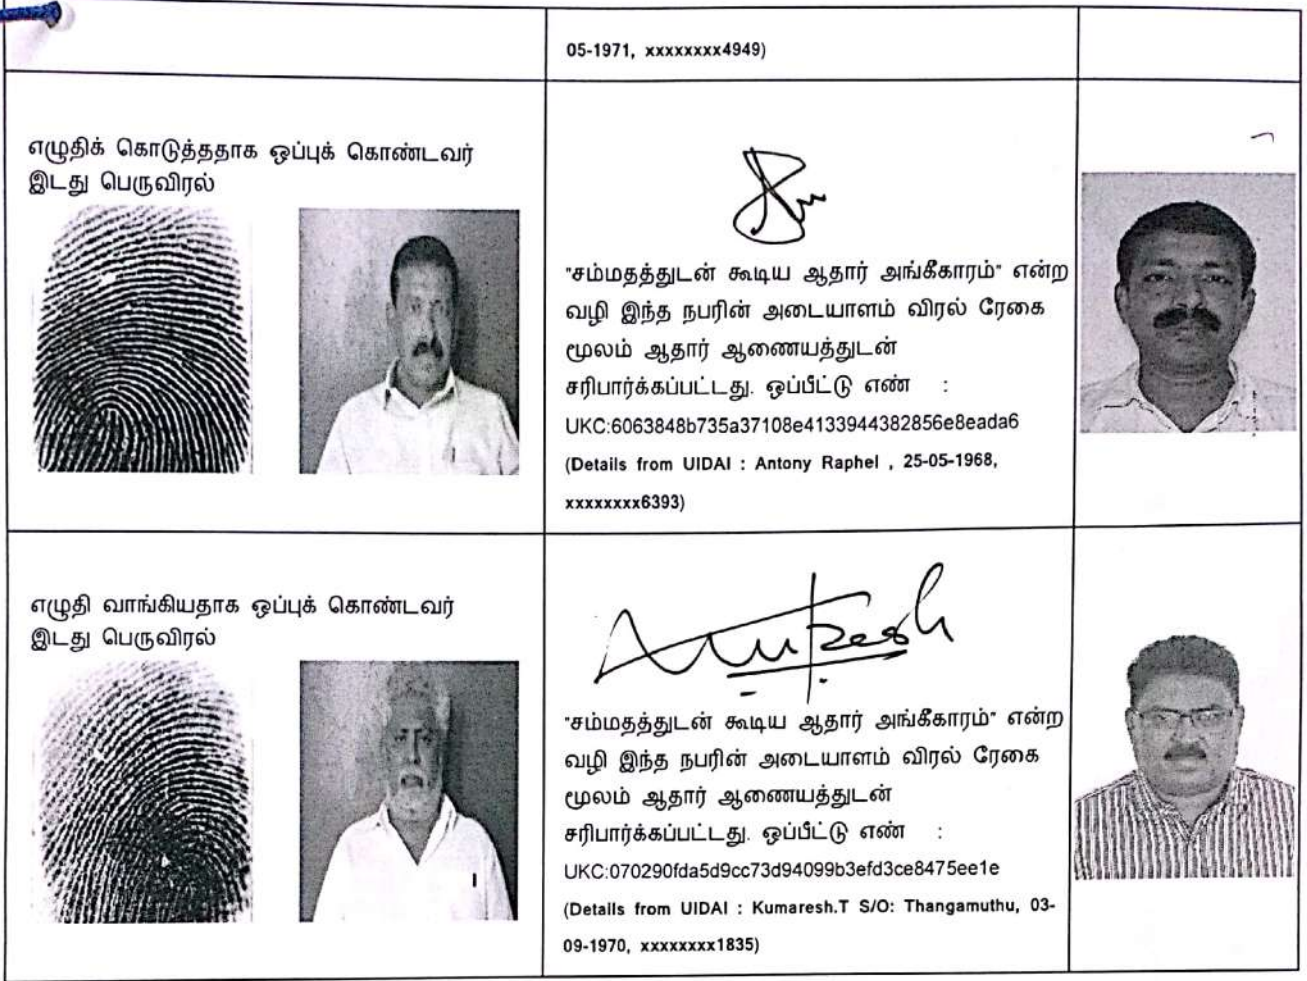 05-1971, xxxxxxxx4949)
எழுதிக் கொடுத்ததாக ஒப்புக் கொண்டவர்
இடது பெருவிரல்
"சம்மதத்துடன் கூடிய ஆதார் அங்கீகாரம்" என்ற
வழி இந்த நபரின் அடையாளம் விரல் ரேகை
மூலம் ஆதார் ஆணையத்துடன்
சரிபார்க்கப்பட்டது. ஒப்பீட்டு எண் :
UKC:6063848b735a37108e4133944382856e8eada6
(Details from UIDAI : Antony Raphel , 25-05-1968,
xxxxxxxx6393)
எழுதி வாங்கியதாக ஒப்புக் கொண்டவர்
இடது பெருவிரல்
"சம்மதத்துடன் கூடிய ஆதார் அங்கீகாரம்" என்ற
வழி இந்த நபரின் அடையாளம் விரல் ரேகை
மூலம் ஆதார் ஆணையத்துடன்
சரிபார்க்கப்பட்டது. ஒப்பீட்டு எண் :
UKC:070290fda5d9cc73d94099b3efd3ce8475ee1e
(Details from UIDAI : Kumaresh.T S/O: Thangamuthu, 03-
09-1970, xxxxxxxx1835)